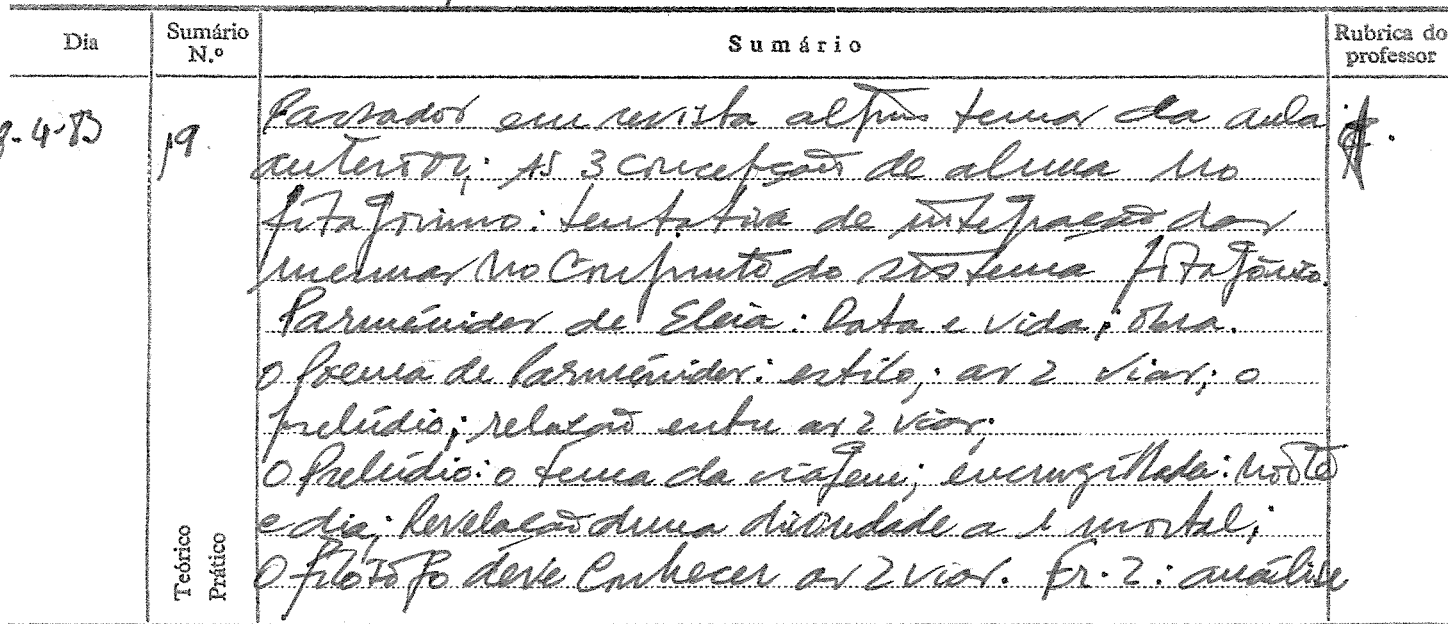 Dia Sumário N.º Sumário Rubrica do professor
-4-83 19. Passados em revista alguns temas da aula
anterior; As 3 concepções de alma no
pitagorismo: tentativa de integração das
mesmas no conjunto do sistema pitagórico.
Parménides de Eleia: Data e vida; obra.
O Poema de Parménides: estilo; as 2 vias; o
prelúdio; relação entre as 2 vias;
O Prelúdio: o tema da viagem; encruzilhada: noite
e dia; Revelação duma divindade a 1 mortal;
O filósofo deve conhecer as 2 vias. Fr. 2: análise
Teórico
Prático